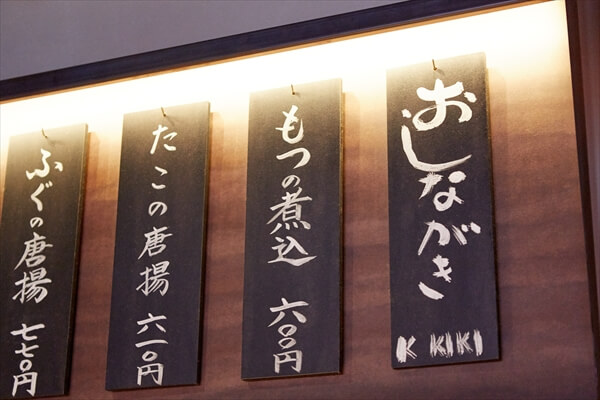 おしながき
K KIKI
もつの煮込 六〇〇円
たこの唐揚 六一〇円
ふぐの唐揚 七七〇円